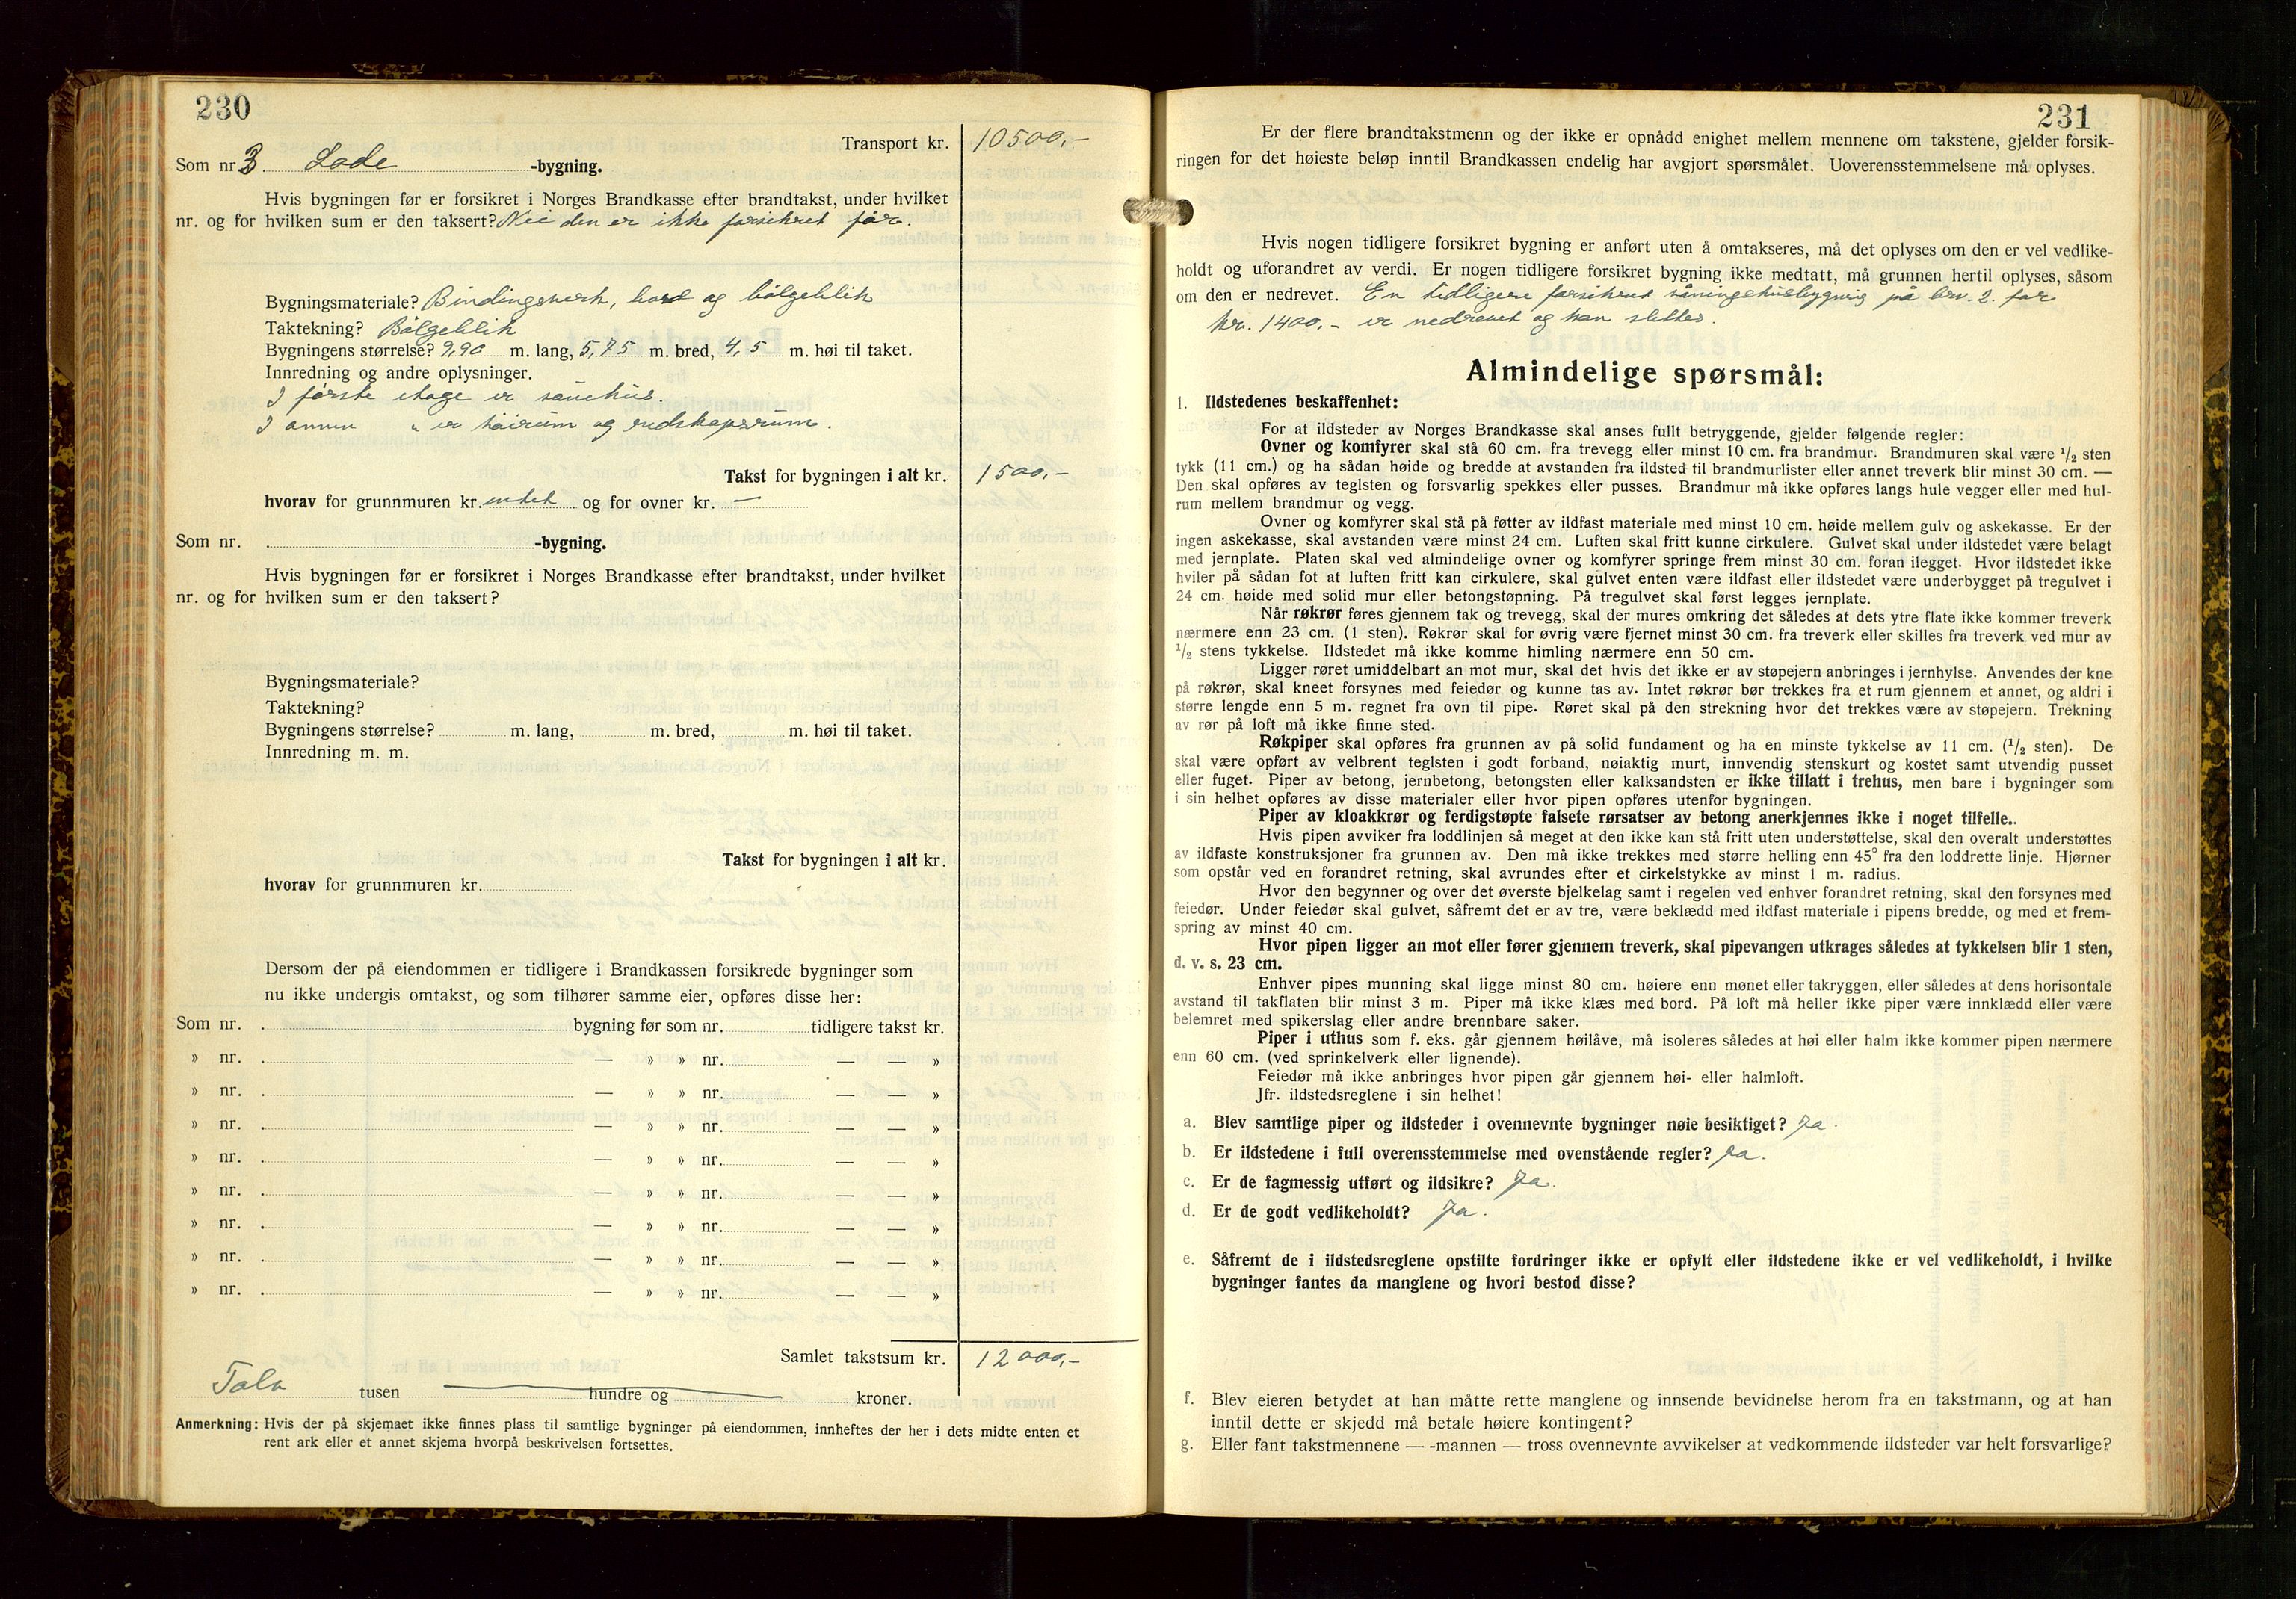 230
Transport kr. 10500,-
Som nr 3 Lade -bygning.
Hvis bygningen før er forsikret i Norges Brandkasse efter brandtakst, under hvilket
nr. og for hvilken sum er den taksert? Nei den er ikke forsikret før.
Bygningsmateriale? Bindingsverk, bord og bølgeblik
Taktekning? Bølgeblik
Bygningens størrelse? 9,90 m. lang, 5,75 m. bred, 4,5 m. høi til taket.
Innredning og andre oplysninger.
I første etage er sauehus.
I annen " er høirum og redskapsrum.
Takst for bygningen i alt kr. 1500,-
hvorav for grunnmuren kr. intet og for ovner kr. —
Som nr. -bygning.
Hvis bygningen før er forsikret i Norges Brandkasse efter brandtakst, under hvilket
nr. og for hvilken sum er den taksert?
Bygningsmateriale?
Taktekning?
Bygningens størrelse? m. lang, m. bred, m. høi til taket.
Innredning m. m.
Takst for bygningen i alt kr.
hvorav for grunnmuren kr.
Dersom der på eiendommen er tidligere i Brandkassen forsikrede bygninger som
nu ikke undergis omtakst, og som tilhører samme eier, opføres disse her:
Som nr. bygning før som nr. tidligere takst kr.
» nr. — » » nr. — — »
» nr. — » » nr. — — »
» nr. — » » nr. — — »
» nr. — » » nr. — — »
» nr. — » » nr. — — »
» nr. — » » nr. — — »
» nr. — » » nr. — — »
» nr. — » » nr. — — »
Samlet takstsum kr. 12000,-
Tolv tusen hundre og kroner.
Anmerkning: Hvis der på skjemaet ikke finnes plass til samtlige bygninger på eiendommen, innheftes der her i dets midte enten et
rent ark eller et annet skjema hvorpå beskrivelsen fortsettes.
231
Er der flere brandtakstmenn og der ikke er opnådd enighet mellem mennene om takstene, gjelder forsik-
ringen for det høieste beløp inntil Brandkassen endelig har avgjort spørsmålet. Uoverensstemmelsene må oplyses.
Hvis nogen tidligere forsikret bygning er anført uten å omtakseres, må det oplyses om den er vel vedlike-
holdt og uforandret av verdi. Er nogen tidligere forsikret bygning ikke medtatt, må grunnen hertil oplyses, såsom
om den er nedrevet. En tidligere forsikret våningshusbygning på brv. 2. for
kr. 1400,- er nedrevet og kan slettes.
Almindelige spørsmål:
1. Ildstedenes beskaffenhet:
For at ildsteder av Norges Brandkasse skal anses fullt betryggende, gjelder følgende regler:
Ovner og komfyrer skal stå 60 cm. fra trevegg eller minst 10 cm. fra brandmur. Brandmuren skal være 1/2 sten
tykk (11 cm.) og ha sådan høide og bredde at avstanden fra ildsted til brandmurlister eller annet treverk blir minst 30 cm. —
Den skal opføres av teglsten og forsvarlig spekkes eller pusses. Brandmur må ikke opføres langs hule vegger eller med hul-
rum mellem brandmur og vegg.
Ovner og komfyrer skal stå på føtter av ildfast materiale med minst 10 cm. høide mellem gulv og askekasse. Er der
ingen askekasse, skal avstanden være minst 24 cm. Luften skal fritt kunne cirkulere. Gulvet skal under ildstedet være belagt
med jernplate. Platen skal ved almindelige ovner og komfyrer springe frem minst 30 cm. foran ilegget. Hvor ildstedet ikke
hviler på sådan fot at luften fritt kan cirkulere, skal gulvet enten være ildfast eller ildstedet være underbygget på tregulvet i
24 cm. høide med solid mur eller betongstøpning. På tregulvet skal først legges jernplate.
Når røkrør føres gjennem tak og trevegg, skal der mures omkring det således at dets ytre flate ikke kommer treverk
nærmere enn 23 cm. (1 sten). Røkrør skal for øvrig være fjernet minst 30 cm. fra treverk eller skilles fra treverk ved mur av
1/2 stens tykkelse. Ildstedet må ikke komme himling nærmere enn 50 cm.
Ligger røret umiddelbart an mot mur, skal det hvis det ikke er av støpejern anbringes i jernhylse. Anvendes der kne
på røkrør, skal kneet forsynes med feiedør og kunne tas av. Intet røkrør bør trekkes fra et rum gjennem et annet, og aldri i
større lengde enn 5 m. regnet fra ovn til pipe. Røret skal på den strekning hvor det trekkes være av støpejern. Trekning
av rør på loft må ikke finne sted.
Røkpiper skal opføres fra grunnen av på solid fundament og ha en minste tykkelse av 11 cm. (1/2 sten). De
skal være opført av velbrent teglsten i godt forband, nøiaktig murt, innvendig stenskurt og kostet samt utvendig pusset
eller fuget. Piper av betong, jernbetong, betongsten eller kalksandsten er ikke tillatt i trehus, men bare i bygninger som
i sin helhet opføres av disse materialer eller hvor pipen opføres utenfor bygningen.
Piper av kloakkrør og ferdigstøpte falsete rørsatser av betong anerkjennes ikke i noget tilfelle..
Hvis pipen avviker fra loddlinjen så meget at den ikke kan stå fritt uten understøttelse, skal den overalt understøttes
av ildfaste konstruksjoner fra grunnen av. Den må ikke trekkes med større helling enn 45° fra den loddrette linje. Hjørner
som opstår ved en forandret retning, skal avrundes efter et cirkelstykke av minst 1 m. radius.
Hvor den begynner og over det øverste bjelkelag samt i regelen ved enhver forandret retning, skal den forsynes med
feiedør. Under feiedør skal gulvet, såfremt det er av tre, være beklædd med ildfast materiale i pipens bredde, og med et frem-
spring av minst 40 cm.
Hvor pipen ligger an mot eller fører gjennem treverk, skal pipevangen utkrages således at tykkelsen blir 1 sten,
d. v. s. 23 cm.
Enhver pipes munning skal ligge minst 80 cm. høiere enn mønet eller takryggen, eller således at dens horisontale
avstand til takflaten blir minst 3 m. Piper må ikke klæs med bord. På loft må heller ikke piper være innklædd eller være
belemret med spikerslag eller andre brennbare saker.
Piper i uthus som f. eks. går gjennem høilåve, må isoleres således at høi eller halm ikke kommer pipen nærmere
enn 60 cm. (ved sprinkelverk eller lignende).
Feiedør må ikke anbringes hvor pipen går gjennem høi- eller halmloft.
Jfr. ildstedsreglene i sin helhet!
a. Blev samtlige piper og ildsteder i ovennevnte bygninger nøie besiktiget? Ja.
b. Er ildstedene i full overensstemmelse med ovenstående regler? Ja.
c. Er de fagmessig utført og ildsikre? Ja.
d. Er de godt vedlikeholdt? Ja.
e. Såfremt de i ildstedsreglene opstilte fordringer ikke er opfylt eller ildstedene ikke er vel vedlikeholdt, i hvilke
bygninger fantes da manglene og hvori bestod disse?
f. Blev eieren betydet at han måtte rette manglene og innsende bevidnelse herom fra en takstmann, og at han
inntil dette er skjedd må betale høiere kontingent?
g. Eller fant takstmennene — -mannen — tross ovennevnte avvikelser at vedkommende ildsteder var helt forsvarlige?